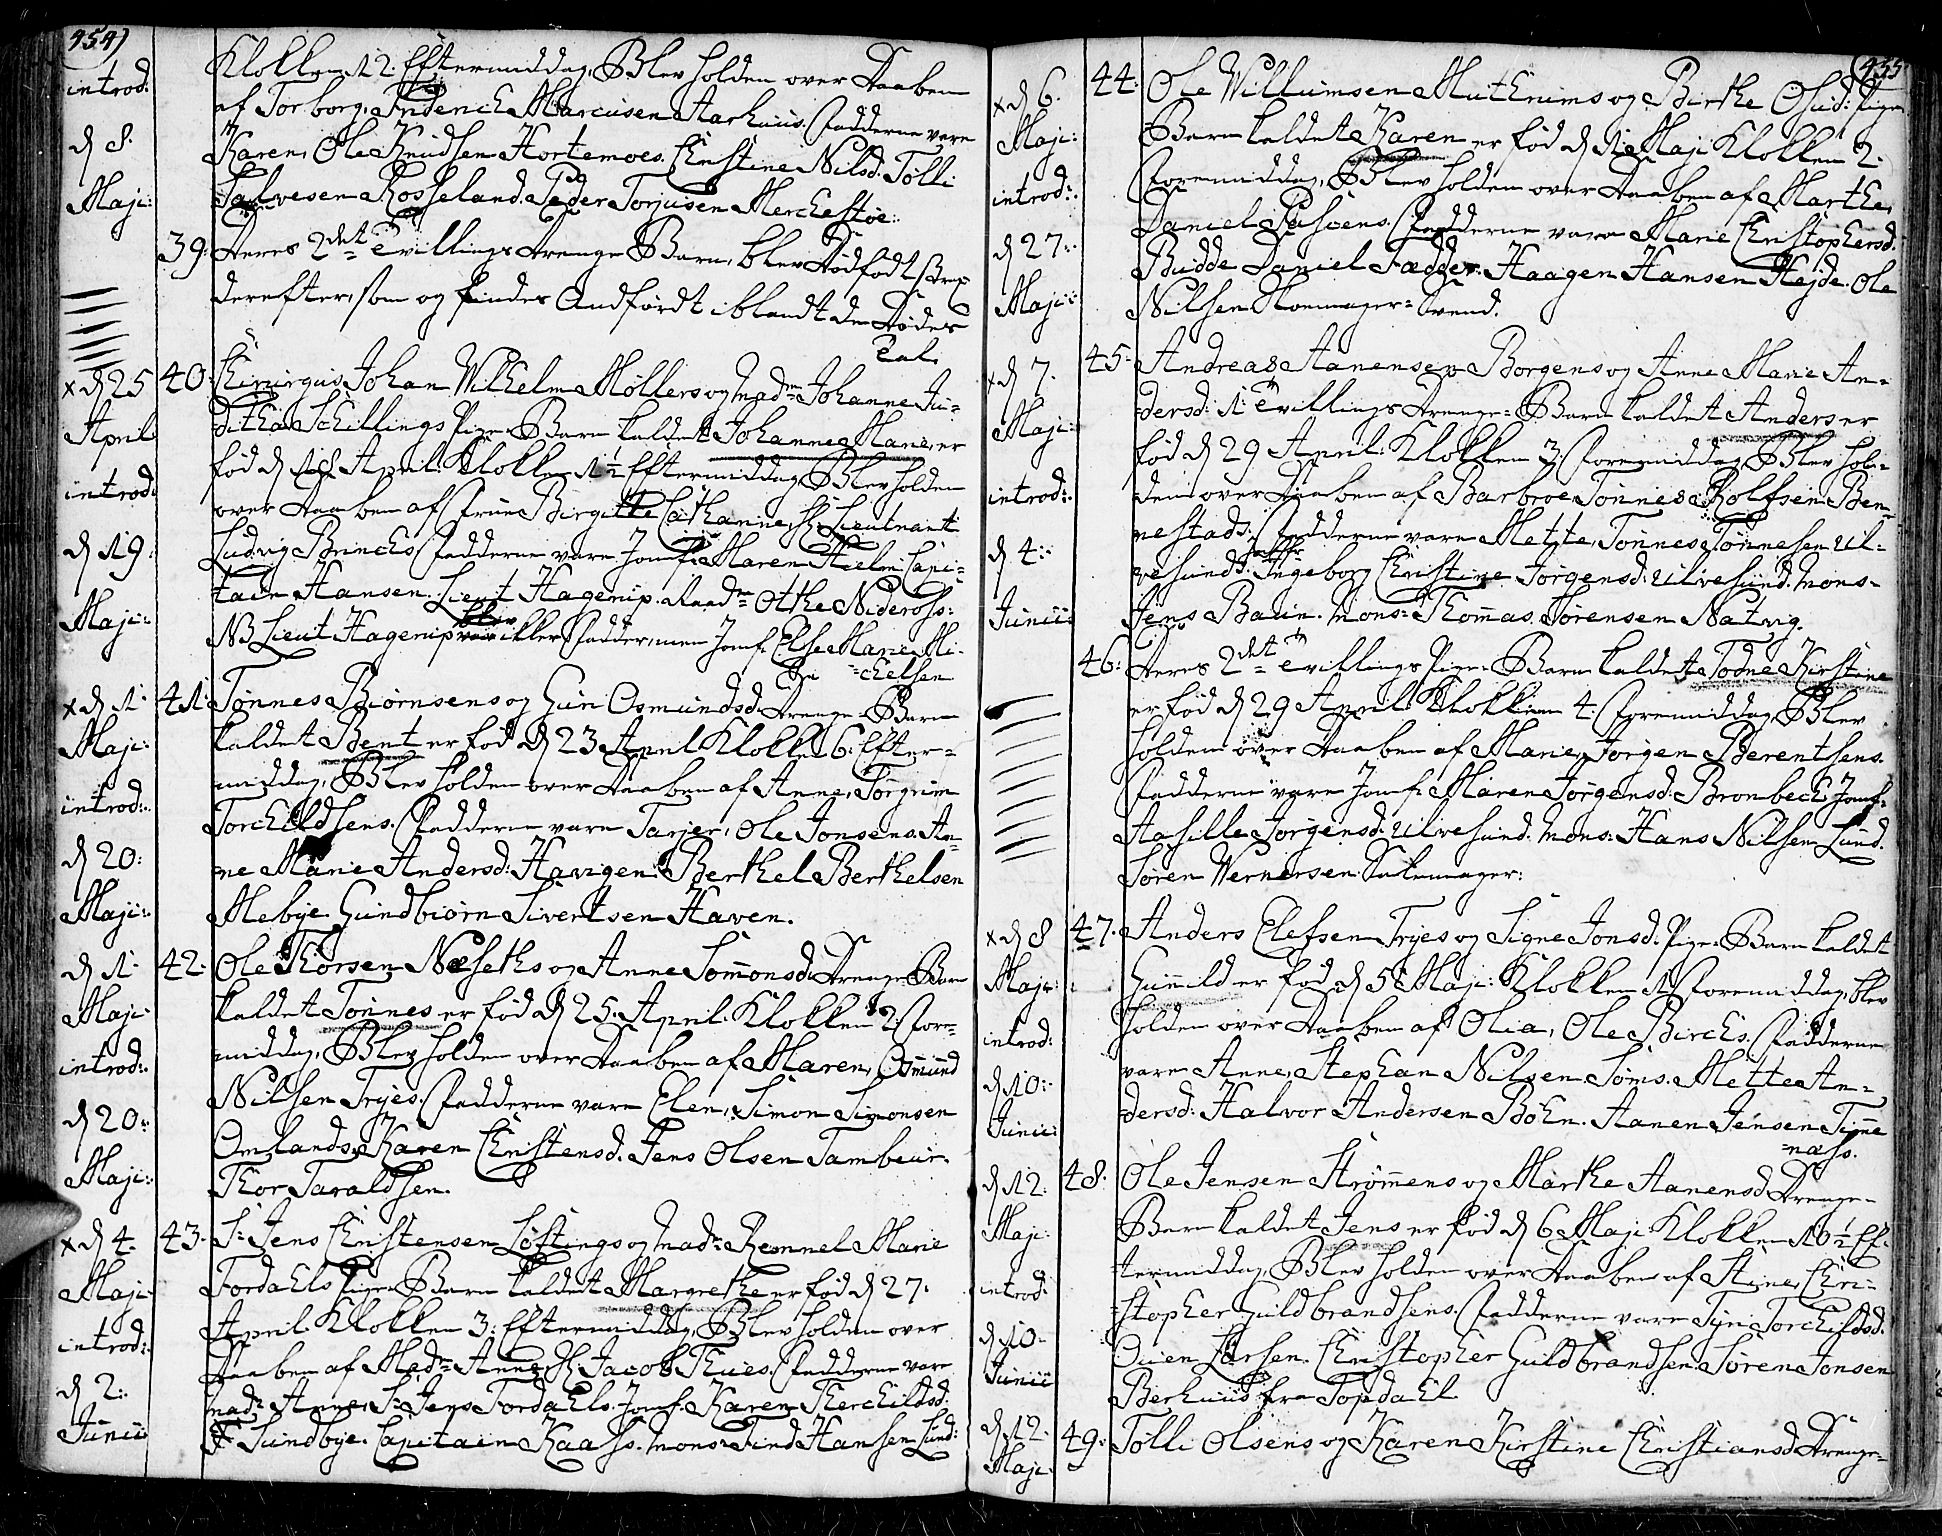 454)
introd:
d 8.
Maji:
Klokken 12 Eftermiddag, Blev holden over Daaben
af Torborg, Friderich Marcusen Aarhuus. Fadderne vare
Karen, Ole Knudsen Hortemoes. Christine Nilsd: Tølli
Salvesen Rosseland. Peder Torjusen Merchestøe:
39: Deres 2det Tvillings Drenge Barn, blev Dødfødt strax
derefter, som og findes Andførdt iblandt de Dødes
Tal.
x d 25
April
introd:
d 19
Maji:
40: Chirurgus Johan Wilhelm Møllers og Madme Johanne Ju-
ditha Schillings Pige-Barn kaldet Johanne Marie er
fød d 18 April Klokken 1½ Eftermiddag, Blev holden
over Daaben af Frue Birgitte Cathanne, Hr Lieutnant
Ludvig Brinches Fadderne vare Jomf: Maren Hielm: Capi-
tain Hansen. Lieut Hagerup. Madme Othe Niderohs:
NB Lieut Hagerup blev ikke Fadder, men Jomf. Else Marie Mi-
=chelsen
x d 1.
Maji:
introd:
d 20:
Maji:
41: Tønnes Biørnsens og Guri Osmundsd: Drenge-Barn
kaldet Bent er fød d 23 April Klokk: 6. Efter-
middag, Blev holden over Daaben af Anne, Torgrim
Torchildsens. Fadderne vare Tarjer, Ole Jonsens. An-
ne Marie Andersd: Havigen. Berthel Berthelsen
Mebye. Gundbiørn Sivertsen Haven.
d 1.
Maji
introd:
d 20:
Maji:
42: Ole Thorsen Næseths og Anne Somonsd: Drenge-Barn
kaldet Tønnes er fød d 25 April. Klokken 2 For-
middag, Blev holden over Daaben af Maren, Osmund
Nilsen Tryes. Fadderne vare Elen, Simon Simonsen
Omlands. Karen Christensd. Jens Olsen Tambeur.
Thor Taraldsen.
x d 4.
Maji
introd:
d 2:
Junii
43: Sr Jens Christensen Løftings og Madme Remmel Marie
Fordahls Pige-Barn kaldet Margrethe er fød d 27.
April. Klokken 3: Eftermiddag, Blev holden over
Daaben af Madme Anne, Hr Jacob Thues. Fadderne vare
Madme Anne, Sr Jens Fordahls. Jomf: Karen Therchildsd:
Sundbye. Capitain Kaahs. Mons: Find Hansen Lund:
455
x d 6.
Maji:
introd:
d 27:
Maji:
44: Ole Willumsen Muthrims og Birthe Osud: Pige
Barn kaldet Karen er fød d 1 Maji Klokken 2.
Formiddag, Blev holden over Daaben af Marthe,
Daniel Pusiens. Fadderne vare Marie Christophersd:
Budde Daniel Fædder. Haagen Hansen Hejde. Ole
Nilsen Skomager-Svend.
x d 7.
Maji
introd:
d 4:
Junii:
45: Andreas Aanensen Borgens og Anne Marie An-
dersd: 1te Tvillings Drenge-Barn kaldet Anders er
fød d 29 April. Klokken 3. Formiddag Blev hol-
den over Daaben af Barbroe, Tønnes Rolfsen Ben-
nestads. Fadderne vare Mette, Tønnes Tønnesen Ul-
vesund: Ingeborg Christine Jørgensd: Ulvesund. Mons-
Jens Bauin. Mons: Thomas Sørensen Natvig.
46: Deres 2det Tvillings Pige-Barn kaldet Todne Kirstine
er fød d 29 April. Klokken 4. Formiddag, Blev
holden over Daaben af Marie, Jørgen Berentsens.
Fadderne vare Jomf: Maren Jørgensd: Bronbech. Jomf:
Hasille Jørgensd: Ulvesund. Mons: Hans Nilsen Lund.
Søren Wernersen Salemager:
x d 8
Maji:
introd:
d 10:
Junii:
47. Anders Elefsen Tryes og Signe Jonsd: Pige-Barn kaldet
Gunild er fød d 5 Maji: Klokken 1 Formiddag, blev
holden over Daaben af Olia, Ole Birchs. Fadderne
vare Anne, Stephan Nilsen Soms. Mette An-
dersd: Halvor Andersen Bøhn. Aanen Jensen Timme
=næhs.
d 12:
Maji:
introd:
d 10.
Junii
48: Ole Jensen Strømmens og Marthe Aanensd: Drenge-
Barn kaldet Jens er fød d 6 Maji Klokken 10½ Ef-
termiddag, Blev holden over Daaben af Stine, Chri-
stopher Guldbrandsens. Fadderne vare Syn: Torchildsd.
Ouen Larsen. Christopher Guldbrandsen. Søren Jonsen
Berhuus fra Topdahl
d 12.
Maji
49: Tølli Olsens og Karen Kirstine Christiansd: Drenge-